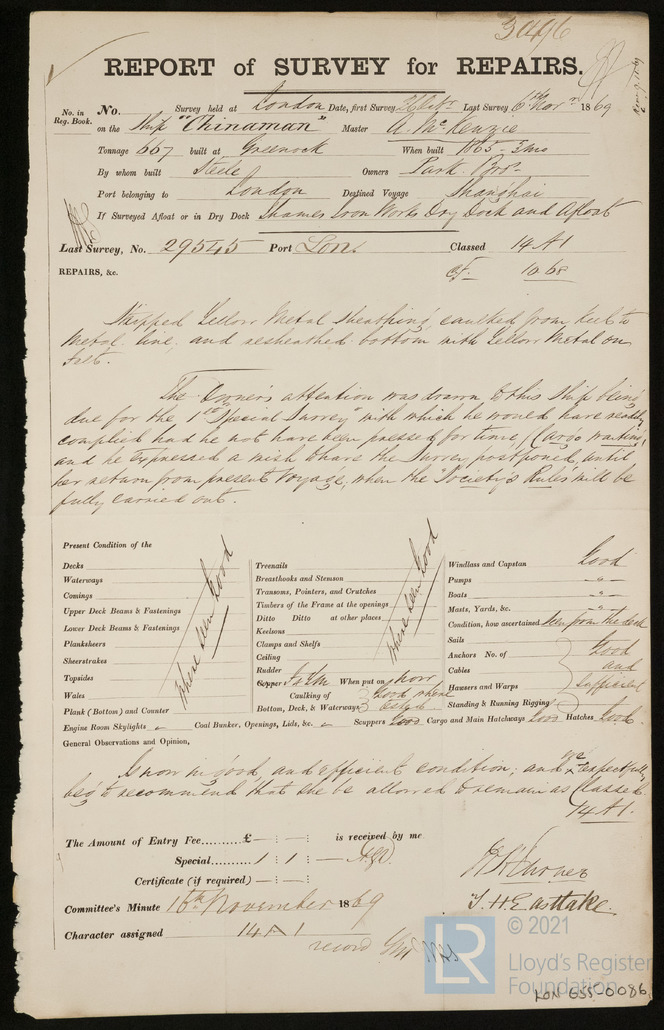 3046
REPORT of SURVEY for REPAIRS.
No. in Reg. Book.
No. Survey held at London Date, first Survey 26 Octr. Last Survey 6th Novr. 1869
on the Ship "Chinaman" Master A. McKenzie
Tonnage 667 built at Greenock When built 1865 - 3mo
By whom built Steele Owners Park Bros.
Port belonging to London Destined Voyage Shanghai
If Surveyed Afloat or in Dry Dock Thames Iron Works Dry Dock and Afloat
Last Survey, No. 29545 Port Lon. Classed 14 A1
REPAIRS, &c. cf. 10.68
Stripped Yellow Metal Sheathing, caulked from keel to
Metal line, and resheathed bottom with Yellow Metal on
felt.
The Owner's attention was drawn to this Ship being
due for the 1st "Special Survey" with which he would have readily
complied had he not have been pressed for time, (Cargo waiting)
and he expressed a wish to have the Survey postponed, until
her return from present Voyage, when the "Society's Rules" will be
fully carried out.
Present Condition of the
Decks
Waterways
Comings
Upper Deck Beams & Fastenings
Lower Deck Beams & Fastenings
Planksheers
Sheerstrakes
Topsides
Wales
Plank (Bottom) and Counter
Where seen Good
Treenails
Breasthooks and Stemson
Transoms, Pointers, and Crutches
Timbers of the Frame at the openings
Ditto Ditto at other places
Keelsons
Clamps and Shelfs
Ceiling
Rudder
Copper When put on now
Caulking of Bottom, Deck, & Waterways Good where
Where seen Good
Windlass and Capstan Good
Pumps - " -
Boats - " -
Masts, Yards, &c. - " -
Condition, how ascertained seen from the deck
Sails
Anchors No. of
Cables
Hawsers and Warps
Standing & Running Rigging
Good
and
Sufficient
Engine Room Skylights Coal Bunker, Openings, Lids, &c. Scuppers Good Cargo and Main Hatchways Good Hatches Good
General Observations and Opinion,
Is now in good and efficient condition, and we respectfully
beg to recommend that she be allowed to remain as Classed
14 A1.
The Amount of Entry Fee......£ — : — : is received by me
Special......... 1 : 1 : —
Certificate (if required) — : — :
T. H. Eastlake.
Committee's Minute 16th November 1869
Character assigned 14 A 1
record
© 2021
LR
Lloyd's Register
Foundation
LON 655-0086